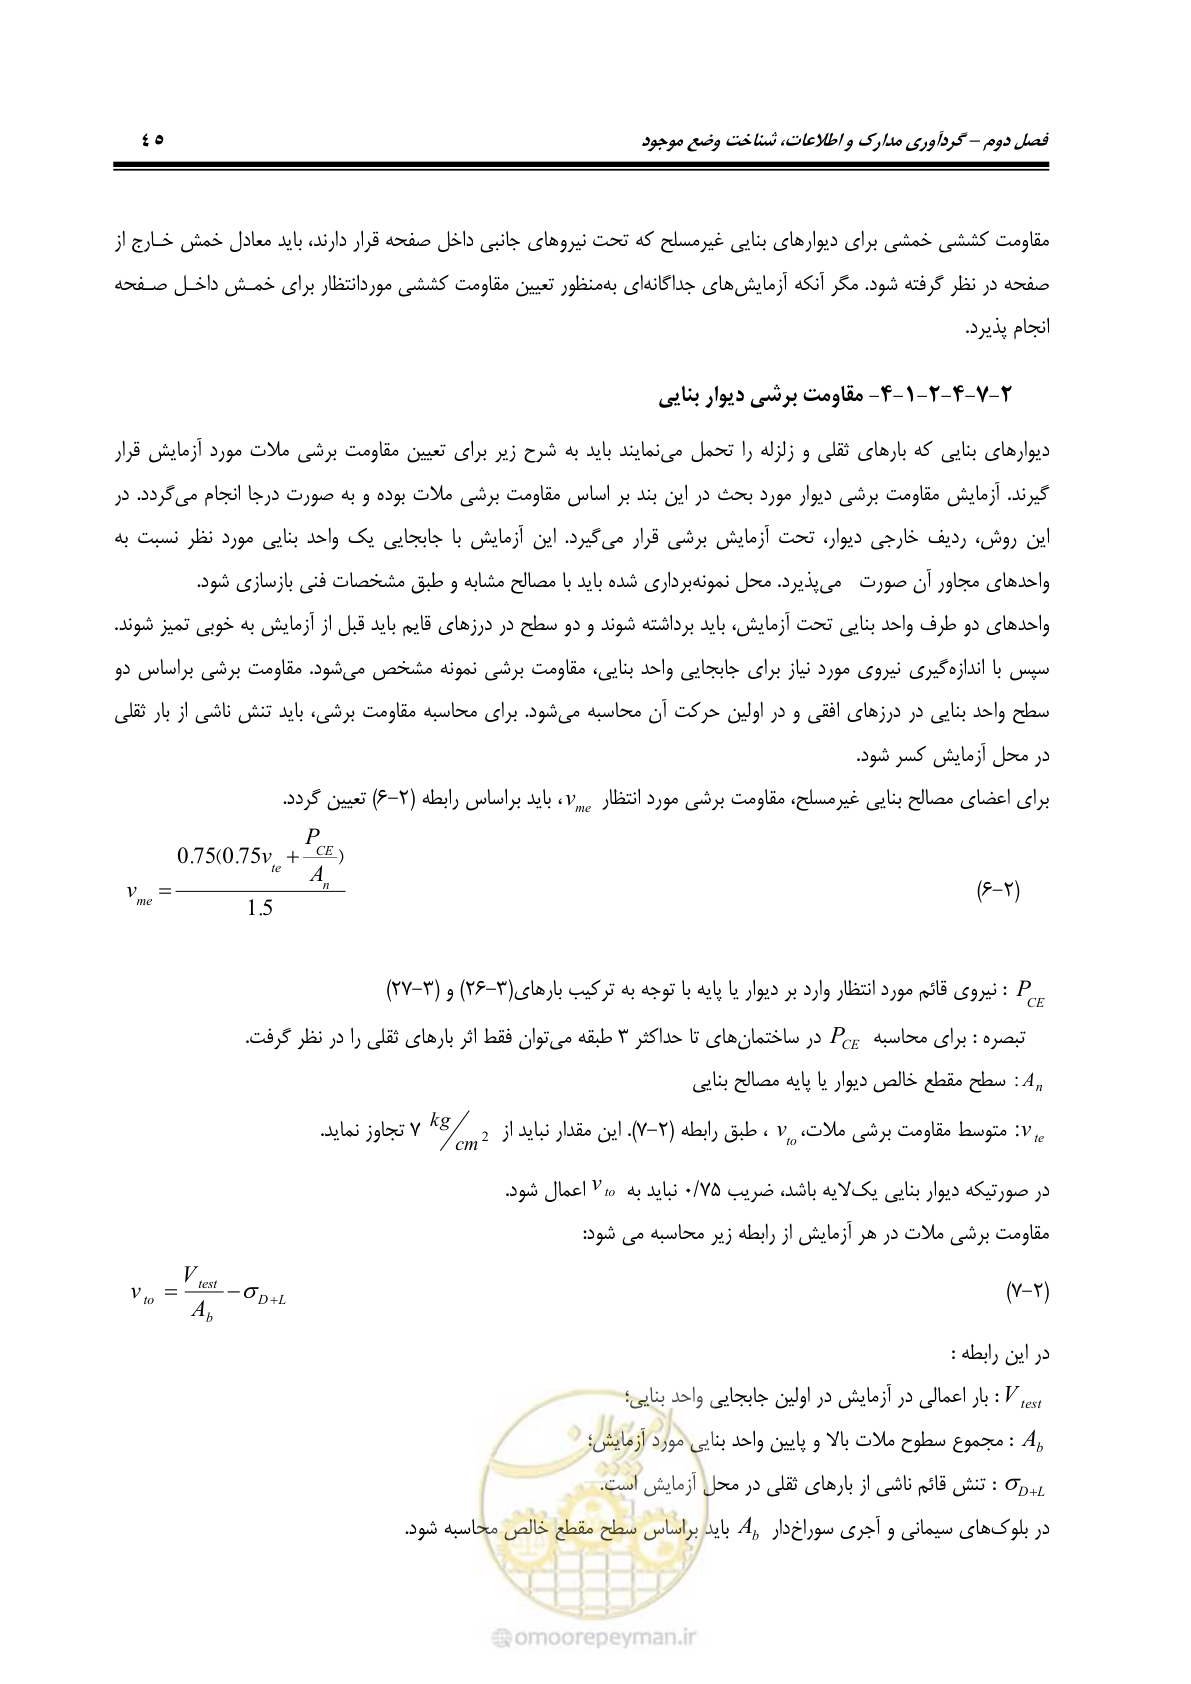 فصل دوم – گردآوری مدارک و اطلاعات، شناخت وضع موجود ٤٥
مقاومت کششی خمشی برای دیوارهای بنایی غیرمسلح که تحت نیروهای جانبی داخل صفحه قرار دارند، باید معادل خمش خـارج از
صفحه در نظر گرفته شود. مگر آنکه آزمایش‌های جداگانه‌ای به‌منظور تعیین مقاومت کششی موردانتظار برای خمـش داخـل صـفحه
انجام پذیرد.
۲-۷-۴-۲-۱-۴- مقاومت برشی دیوار بنایی
دیوارهای بنایی که بارهای ثقلی و زلزله را تحمل می‌نمایند باید به شرح زیر برای تعیین مقاومت برشی ملات مورد آزمایش قرار
گیرند. آزمایش مقاومت برشی دیوار مورد بحث در این بند بر اساس مقاومت برشی ملات بوده و به صورت درجا انجام می‌گردد. در
این روش، ردیف خارجی دیوار، تحت آزمایش برشی قرار می‌گیرد. این آزمایش با جابجایی یک واحد بنایی مورد نظر نسبت به
واحدهای مجاور آن صورت می‌پذیرد. محل نمونه‌برداری شده باید با مصالح مشابه و طبق مشخصات فنی بازسازی شود.
واحدهای دو طرف واحد بنایی تحت آزمایش، باید برداشته شوند و دو سطح در درزهای قایم باید قبل از آزمایش به خوبی تمیز شوند.
سپس با اندازه‌گیری نیروی مورد نیاز برای جابجایی واحد بنایی، مقاومت برشی نمونه مشخص می‌شود. مقاومت برشی براساس دو
سطح واحد بنایی در درزهای افقی و در اولین حرکت آن محاسبه می‌شود. برای محاسبه مقاومت برشی، باید تنش ناشی از بار ثقلی
در محل آزمایش کسر شود.
برای اعضای مصالح بنایی غیرمسلح، مقاومت برشی مورد انتظار v_me، باید براساس رابطه (۲-۶) تعیین گردد.
(۲-۶) v_me = 0.75(0.75v_te + P_CE / A_n) / 1.5
P_CE : نیروی قائم مورد انتظار وارد بر دیوار یا پایه با توجه به ترکیب بارهای(۳-۲۶) و (۳-۲۷)
تبصره : برای محاسبه P_CE در ساختمان‌های تا حداکثر ۳ طبقه می‌توان فقط اثر بارهای ثقلی را در نظر گرفت.
A_n : سطح مقطع خالص دیوار یا پایه مصالح بنایی
v_te: متوسط مقاومت برشی ملات، v_to ، طبق رابطه (۲-۷). این مقدار نباید از ۷ kg/cm² تجاوز نماید.
در صورتیکه دیوار بنایی یک‌لایه باشد، ضریب ۰/۷۵ نباید به v_to اعمال شود.
مقاومت برشی ملات در هر آزمایش از رابطه زیر محاسبه می شود:
(۲-۷) v_to = V_test / A_b − σ_D+L
در این رابطه :
V_test : بار اعمالی در آزمایش در اولین جابجایی واحد بنایی؛
A_b : مجموع سطوح ملات بالا و پایین واحد بنایی مورد آزمایش؛
σ_D+L : تنش قائم ناشی از بارهای ثقلی در محل آزمایش است.
در بلوک‌های سیمانی و آجری سوراخ‌دار A_b باید براساس سطح مقطع خالص محاسبه شود.
امورپیمان
@omoorepeyman.ir